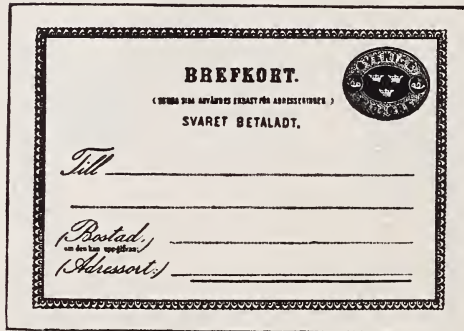 BREFKORT.
(DENNA SIDA ANVÄNDES ENDAST FÖR ADRESSERINGEN.)
SVARET BETALADT.
SVERIGE
Till
(Bostad.)
om den kan uppgifvas.
(Adressort.)